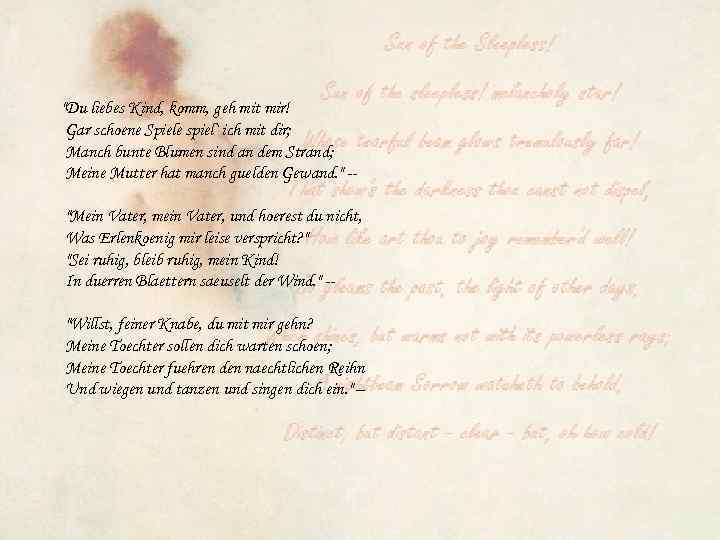 Sun of the Sleepless!
Sun of the sleepless! melancholy star!
Whose tearful beam glows tremulously far!
That show's the darkness thou canst not dispel,
How like art thou to joy remember'd well!
gleams the past, the light of other days,
shines, but warms not with its powerless rays;
beam Sorrow watcheth to behold,
Distinct, but distant - clear - but, oh how cold!
"Du liebes Kind, komm, geh mit mir!
Gar schoene Spiele spiel` ich mit dir;
Manch bunte Blumen sind an dem Strand;
Meine Mutter hat manch guelden Gewand." --
"Mein Vater, mein Vater, und hoerest du nicht,
Was Erlenkoenig mir leise verspricht?"
"Sei ruhig, bleib ruhig, mein Kind!
In duerren Blaettern saeuselt der Wind." --
"Willst, feiner Knabe, du mit mir gehn?
Meine Toechter sollen dich warten schoen;
Meine Toechter fuehren den naechtlichen Reihn
Und wiegen und tanzen und singen dich ein." --